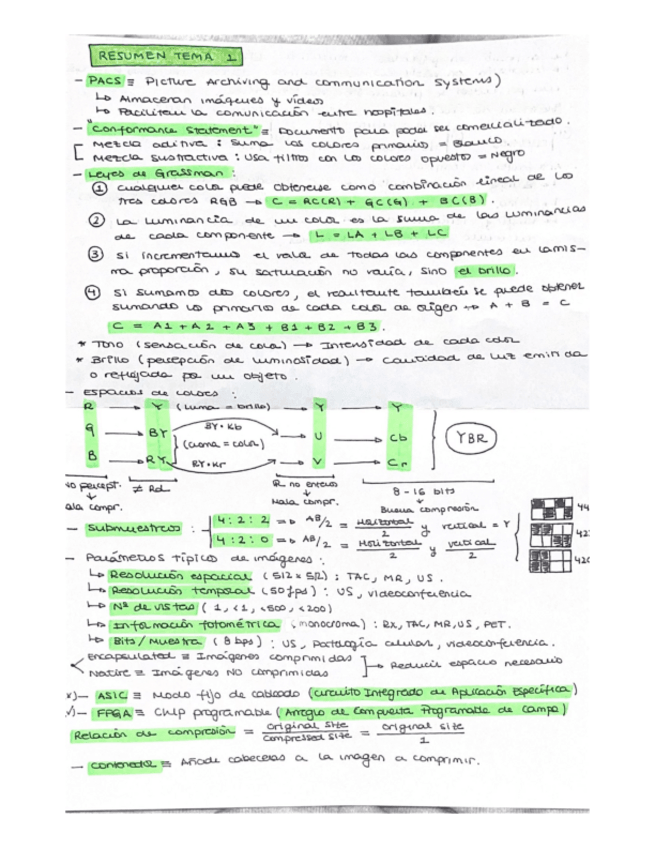 RESUMEN TEMA 1
- PACS ≡ Picture Archiving and Communication Systems)
↳ Almacenan imágenes y vídeos
↳ Facilitan la comunicación entre hospitales.
- "Conformance Statement" ≡ Documento para poder ser comercializado.
[ Mezcla aditiva : Suma los colores primarios = Blanco
Mezcla sustractiva : Usa filtros con los colores opuestos = Negro
- Leyes de Grassman :
① Cualquier color puede obtenerse como combinación lineal de los
tres colores RGB → C = RC(R) + GC(G) + BC(B).
② La luminancia de un color es la suma de las luminancias
de cada componente → L = LA + LB + LC
③ Si incrementamos el valor de todas las componentes en la mis-
ma proporción, su saturación no varía, sino el brillo.
④ Si sumamos dos colores, el resultante también se puede obtener
sumando los primarios de cada color de origen → A + B = C
C = A1 + A2 + A3 + B1 + B2 + B3.
* Tono (sensación de color) → Intensidad de cada color
* Brillo (percepción de luminosidad) → Cantidad de luz emitida
o reflejada por un objeto.
- Espacios de colores :
R → Y (luma = brillo) → Y → Y
G → BY BY·Kb U → Cb YBR
(croma = color)
B → RY RY·Kr V → Cr
No percept. ≠ Rd R no enteros 8 - 16 bits
ala compr. Mala compr. Buena compresión
- Submuestreos : 4:2:2 => AB/2 = Horizontal/2 y vertical = Y
4:2:0 => AB/2 = Horizontal/2 y vertical/2
44
42
420
- Parámetros típicos de imágenes :
↳ Resolución espacial (512 x 512) : TAC, MR, US.
↳ Resolución temporal (50 fps) : US, videoconferencia
↳ Nº de vistas (1, <1, <500, <200)
↳ Información fotométrica (monocroma) : RX, TAC, MR, US, PET.
↳ Bits/Muestra (8 bps) : US, Patología celular, videoconferencia.
Encapsulated ≡ Imágenes comprimidas
→ Reducir espacio necesario
Native ≡ Imágenes NO comprimidas
- ASIC ≡ Modo fijo de cableado (Circuito Integrado de Aplicación Específica)
- FPGA ≡ Chip programable (Arreglo de Compuerta Programable de Campo)
Relación de compresión = original size/compressed size = original size/1
- Contenedor ≡ Añade cabeceras a la imagen a comprimir.